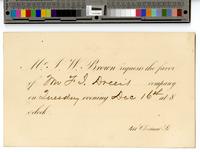 Mr. S. W. Brown requests the favor
of Wm F. I. Dreer's company
on Tuesday evening Dec 16th at 8
o'clock.
Chestnut St.